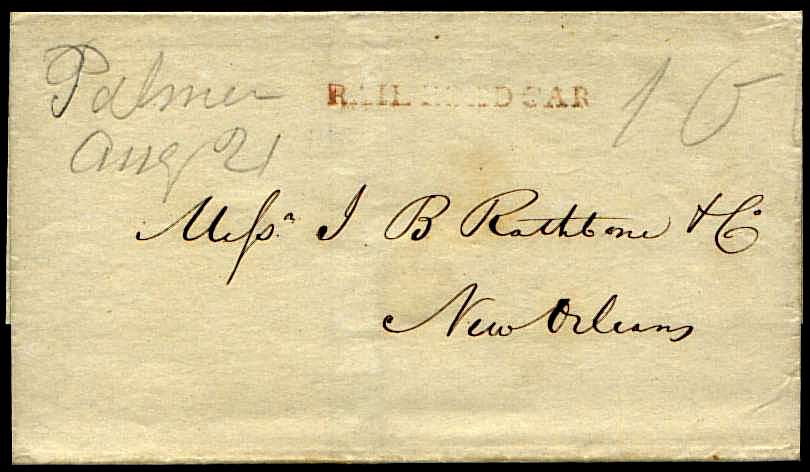 Palmer
Aug 21
RAIL ROAD CAR
10
Messrs J B Rathbone & Co
New Orleans